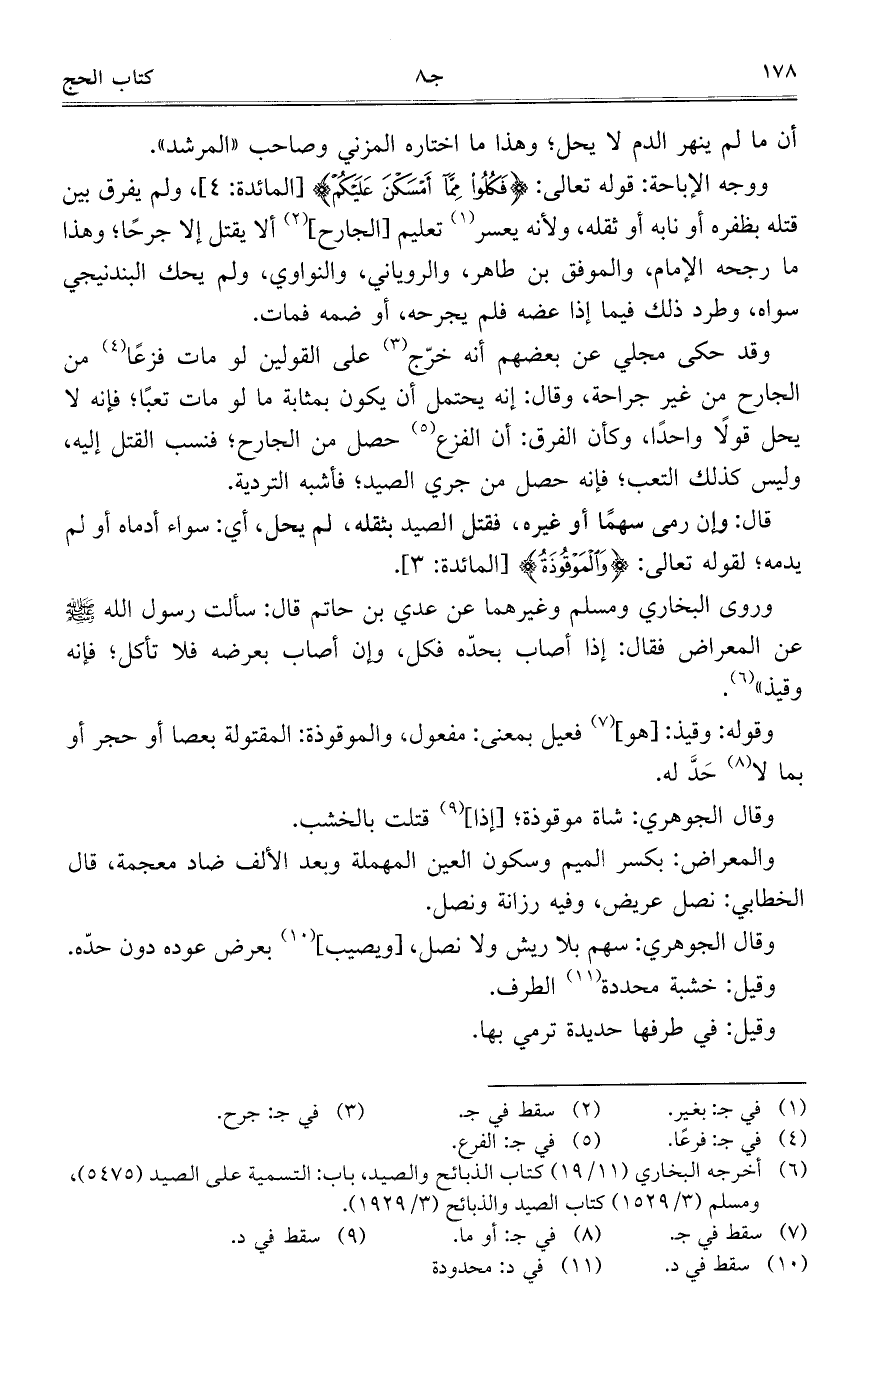 ١٧٨ جـ٨ كتاب الحج
أن ما لم ينهر الدم لا يحل؛ وهذا ما اختاره المزني وصاحب «المرشد».
ووجه الإباحة: قوله تعالى: ﴿فَكُلُوا۟ مِمَّآ أَمْسَكْنَ عَلَيْكُمْ﴾ [المائدة: ٤]، ولم يفرق بين
قتله بظفره أو نابه أو ثقله، ولأنه يعسر(١) تعليم [الجارح](٢) ألا يقتل إلا جرحًا؛ وهذا
ما رجحه الإمام، والموفق بن طاهر، والروياني، والنواوي، ولم يحك البندنيجي
سواه، وطرد ذلك فيما إذا عضه فلم يجرحه، أو ضمه فمات.
وقد حكى مجلي عن بعضهم أنه خرّج(٣) على القولين لو مات فزعًا(٤) من
الجارح من غير جراحة، وقال: إنه يحتمل أن يكون بمثابة ما لو مات تعبًا؛ فإنه لا
يحل قولًا واحدًا، وكأن الفرق: أن الفزع(٥) حصل من الجارح؛ فنسب القتل إليه،
وليس كذلك التعب؛ فإنه حصل من جري الصيد؛ فأشبه التردية.
قال: وإن رمى سهمًا أو غيره، فقتل الصيد بثقله، لم يحل، أي: سواء أدماه أو لم
يدمه؛ لقوله تعالى: ﴿وَٱلْمَوْقُوذَةُ﴾ [المائدة: ٣].
وروى البخاري ومسلم وغيرهما عن عدي بن حاتم قال: سألت رسول الله ﷺ
عن المعراض فقال: إذا أصاب بحدّه فكل، وإن أصاب بعرضه فلا تأكل؛ فإنه
وقيذ»(٦).
وقوله: وقيذ: [هو](٧) فعيل بمعنى: مفعول، والموقوذة: المقتولة بعصا أو حجر أو
بما لا(٨) حَدَّ له.
وقال الجوهري: شاة موقوذة؛ [إذا](٩) قتلت بالخشب.
والمعراض: بكسر الميم وسكون العين المهملة وبعد الألف ضاد معجمة، قال
الخطابي: نصل عريض، وفيه رزانة ونصل.
وقال الجوهري: سهم بلا ريش ولا نصل، [ويصيب](١٠) بعرض عوده دون حدّه.
وقيل: خشبة محددة(١١) الطرف.
وقيل: في طرفها حديدة ترمي بها.
(١) في جـ: بغير. (٢) سقط في جـ. (٣) في جـ: جرح.
(٤) في جـ: فرعًا. (٥) في جـ: الفرع.
(٦) أخرجه البخاري (١٩/١١) كتاب الذبائح والصيد، باب: التسمية على الصيد (٥٤٧٥)،
ومسلم (٣/ ١٥٢٩) كتاب الصيد والذبائح (٣/ ١٩٢٩).
(٧) سقط في جـ. (٨) في جـ: أو ما. (٩) سقط في د.
(١٠) سقط في د. (١١) في د: محدودة